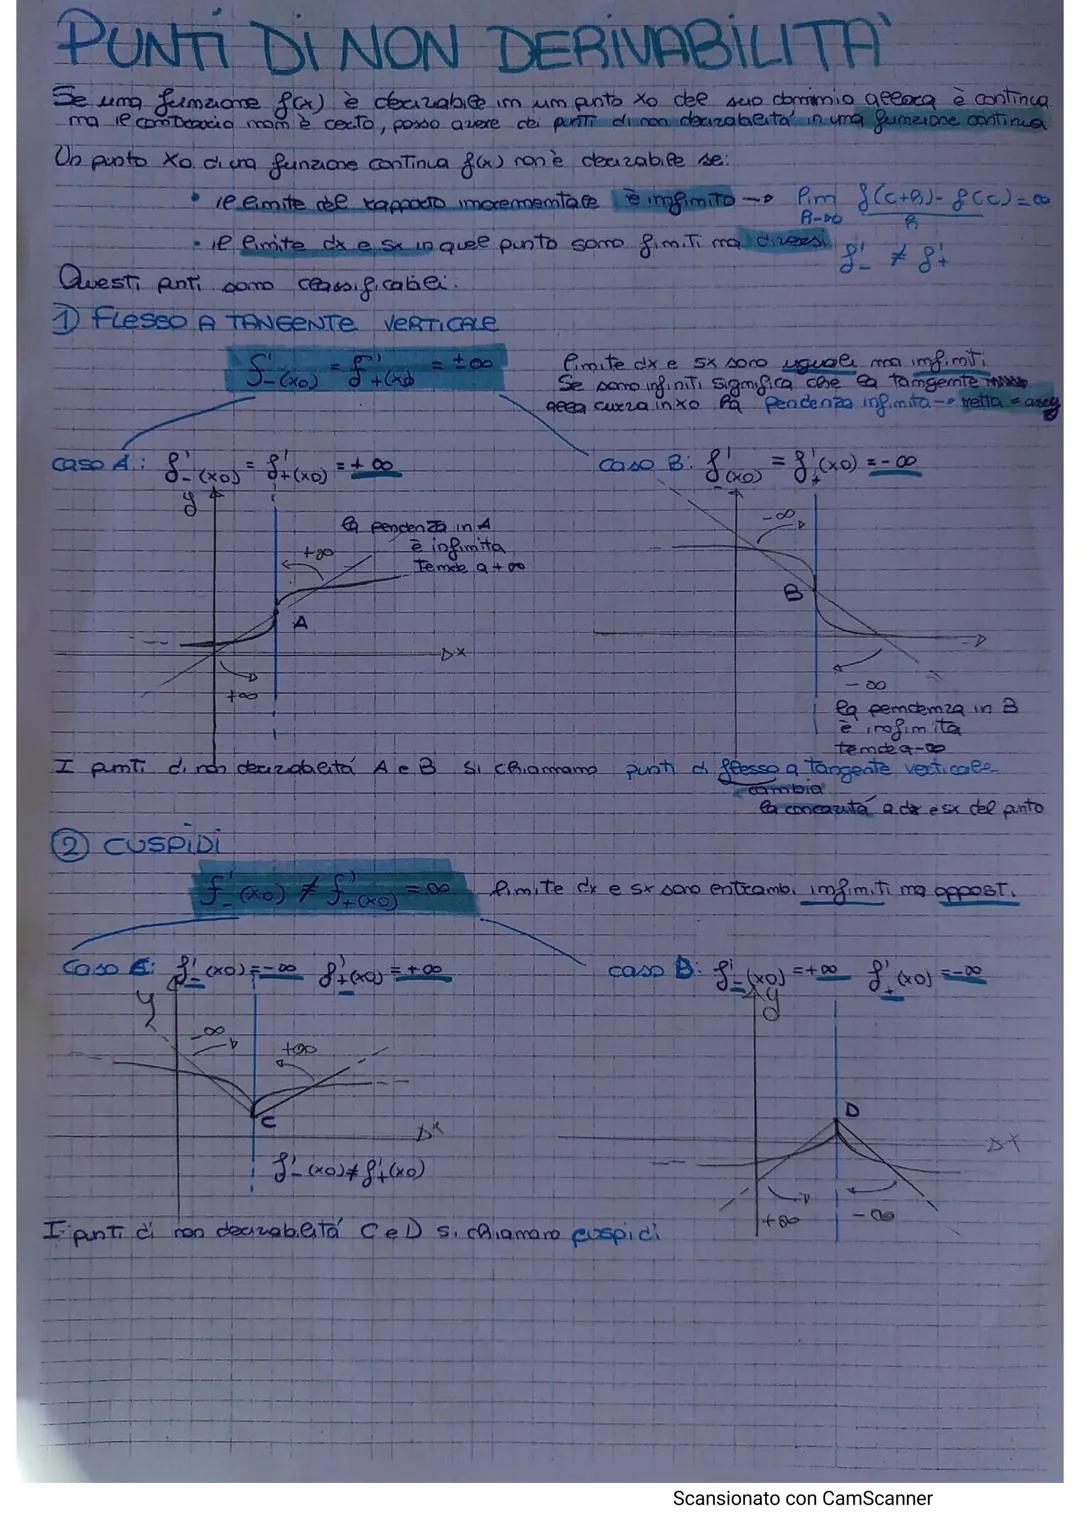 PUNTI DI NON DERIVABILITA'
Se una funzione f(x) è derivabile in un punto x0 del suo dominio allora è continua
ma il contrario non è certo, posso avere dei punti di non derivabilità in una funzione continua
Un punto x0 di una funzione continua f(x) non è derivabile se:
• il limite del rapporto incrementale è infinito → lim h→0 f(c+h)-f(c)/h = ∞
• il limite dx e sx in quel punto sono finiti ma diversi f'- ≠ f'+
Questi punti sono classificabili:
1) FLESSO A TANGENTE VERTICALE
f'-(x0) = f'+(x0) = ±∞
limite dx e sx sono uguali ma infiniti
Se sono infiniti significa che la tangente
alla curva in x0 ha pendenza infinita → retta =
caso A: f'-(x0) = f'+(x0) = +∞
caso B: f'-(x0) = f'+(x0) = -∞
y
la pendenza in A
è infinita
tende a +∞
+∞
-∞
A
B
x
+∞
-∞
la pendenza in B
è infinita
tende a -∞
I punti di non derivabilità A e B si chiamano punti di flesso a tangente verticale
cambia
la concavità a dx e sx del punto
2 CUSPIDI
f'-(x0) ≠ f'+(x0) = ∞ limite dx e sx sono entrambi infiniti ma opposti
Caso C: f'-(x0) = -∞ f'+(x0) = +∞
caso D: f'-(x0) = +∞ f'+(x0) = -∞
y
y
-∞
+∞
C
D
x
x
f'-(x0) ≠ f'+(x0)
+∞
-∞
I punti di non derivabilità C e D si chiamano cuspidi
Scansionato con CamScanner